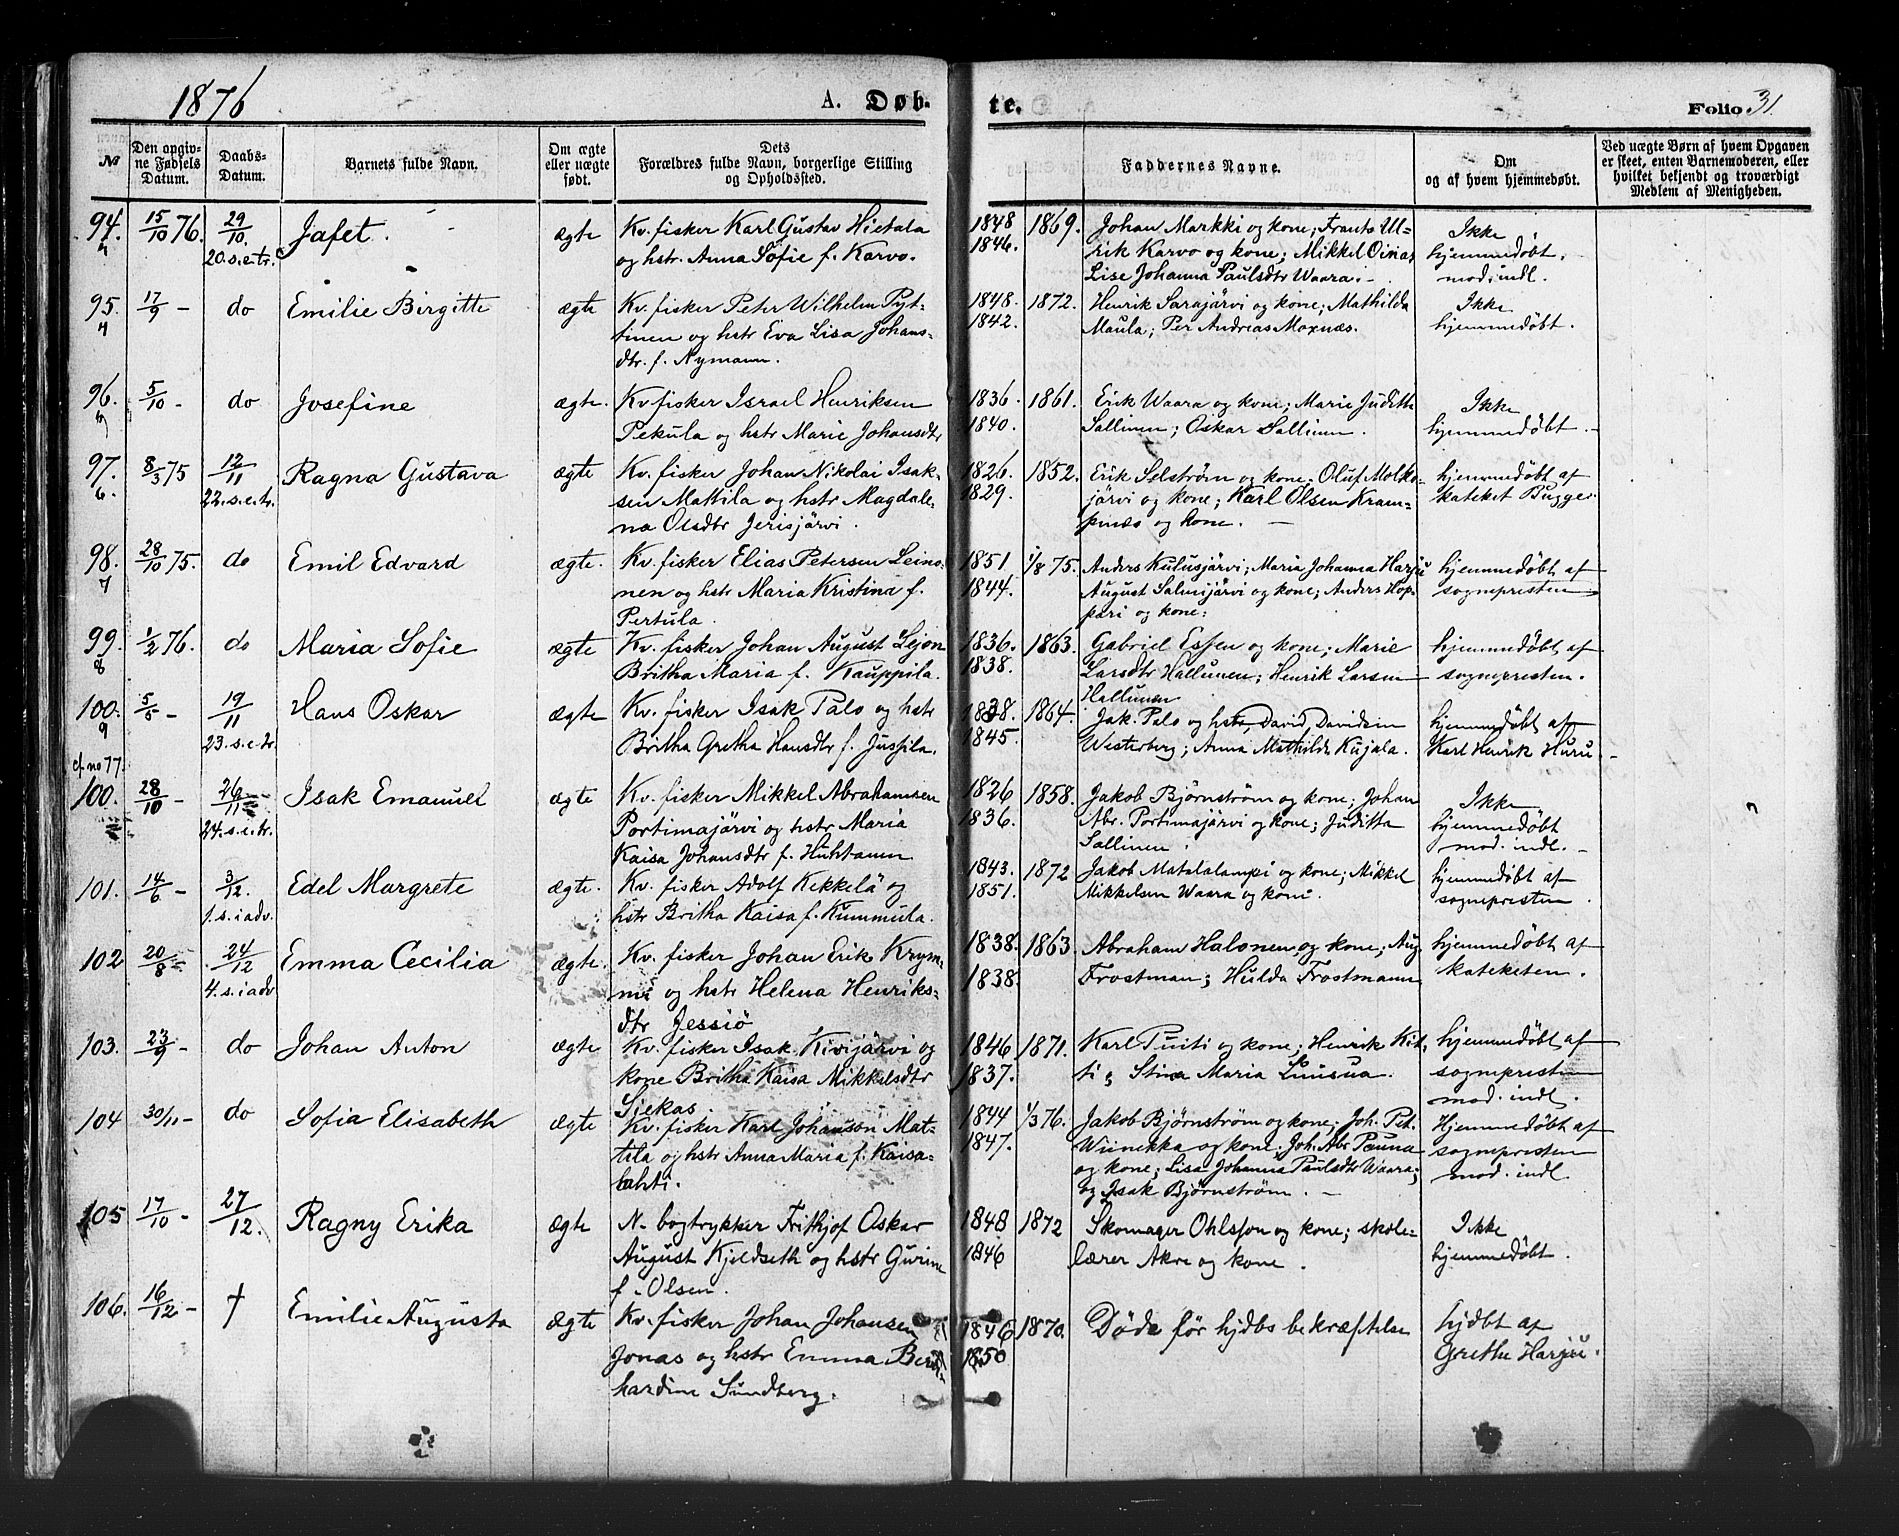 1876
A. Døb-
te.
Folio 31.
№
Den opgiv-
ne Fødsels
Datum.
Daabs-
Datum.
Barnets fulde Navn.
Om ægte
eller uægte
født.
Dets
Forældres fulde Navn, borgerlige Stilling
og Opholdssted.
Faddernes Navne.
Om
og af hvem hjemmedøbt.
Ved uægte Børn af hvem Opgaven
er skeet, enten Barnemoderen, eller
hvilket bekjendt og troværdigt
Medlem af Menigheden.
94. 15/10 76. 29/10. 20.s.e.tr. Jafet. ægte
Kv. fisker Karl Gustav Hietala
og hstr. Anna Sofie f. Karvo.
1848 1869.
1846.
Johan Markki og kone; Frants Ul-
rik Karvo og kone; Mikkel Oinas
Lise Johanna Paulsdtr Waara.
Ikke
hjemmedøbt.
mod. indl.
95. 17/9 - do Emilie Birgitte ægte
Kv. fisker Peter Wilhelm Pyt-
tinen og hstr Eva Lisa Johans-
dtr. f. Nymann.
1848. 1872.
1842.
Henrik Sarajärvi og kone; Mathilda
Maula; Per Andreas Moxnæs.
Ikke
hjemmedøbt.
96. 5/10 - do Josefine ægte.
Kv fisker Israel Henriksen
Pekula og hstr Marie Johansdtr
1836. 1861.
1840.
Erik Waara og kone; Marie Judith
Sallinen; Oskar Sallinen.
Ikke
hjemmedøbt.
97. 8/3 75 12/11 22.s.e.tr. Ragna Gustava ægte
6.
Kv. fisker Johan Nikolai Isak-
sen Mattila og hstr Magdale-
na Olsdtr Jerisjärvi.
1826. 1852.
1829.
Erik Selström og kone; Oluf Molko-
järvi og kone; Karl Olsen Kram-
pnæs og kone.
hjemmedøbt af
kateket Bugge.
98. 28/10 75. do Emil Edvard ægte.
7
Kv. fisker Elias Petersen Leino-
nen og hstr Maria Kristina f.
Pertula.
1851. 1/8 75.
1844.
Anders Kulusjärvi; Maria Johanna Harju
August Salmijärvi og kone; Anders Hop-
pari og kone.
hjemmedøbt af
sognepresten
99. 1/2 76. do Maria Sofie ægte
8
Kv. fisker Johan August Lejon
Britha Maria f. Kauppila.
1836. 1863.
1838.
Gabriel Essen og kone; Marie
Larsdtr Hallunen; Henrik Larsen
Hallunen
hjemmedøbt af
sognepresten.
100. 5/5 - 19/11 23.s.e.tr. Hans Oskar ægte
9
Kv. fisker Isak Palo og hstr
Britha Gretha Hansdtr f. Juspila.
1838. 1864.
1845.
Jak. Palo og hstr, David Davidsen
Westerberg; Anna Mathilde Kujala.
hjemmedøbt af
Karl Henrik Huru
cf no 77.
100. 28/10 - 26/11 24.s.e.tr. Isak Emanuel ægte
Kv. fisker Mikkel Abrahamsen
Portimajärvi og hstr Maria
Kaisa Johansdtr f. Huhtanen
1826 1858.
1836.
Jakob Bjørnstrøm og kone; Johan
Abr. Portimajärvi og kone; Juditta
Sallinen.
Ikke
hjemmedøbt
mod. indl.
101. 14/6 - 3/12. 1.s.i adv. Edel Margrete ægte.
Kv. fisker Adolf Kekkelä og
hstr Britha Kaisa f. Kummula.
1843. 1872
1851.
Jakob Matalalampi og kone; Mikkel
Mikkelsen Waara og kone.
hjemmedøbt af
sognepresten.
102 20/8 - 24/12 4.s.i adv Emma Cecilia ægte.
Kv. fisker Johan Erik Krym-
mi og hstr Helena Henriks-
dtr Jessiö
1838. 1863.
1838.
Abraham Halonen og kone; Aug
Frostman; Hulda Frostmann
hjemmedøbt af
kateketen.
103. 23/9 - do Johan Anton ægte
Kv. fisker Isak Kivijärvi og
kone Britha Kaisa Mikkelsdtr
Sjekas
1846 1871.
1837.
Karl Puiti og kone; Henrik Kit-
ti; Stina Maria Luusua.
hjemmedøbt af
sognepresten
mod. indl.
104 30/11 - do Sofia Elisabeth ægte
Kv. fisker Karl Johanson Mat-
tila og hstr Anna Maria f. Kaisa-
lahti.
1844 1/3 76.
1847.
Jakob Bjørnstrøm og kone; Joh. Pet.
Wiinekka og kone; Joh. Abr Pauna
og kone; Lisa Johanna Paulsdtr Waara;
og Isak Bjørnstrøm.
Hjemmedøbt af
sognepresten
mod. indl
105 17/10 - 27/12. Ragny Erika ægte
N. bogtrykker Frithjof Oskar
August Kjeldseth og hstr Gurine
f. Olsen.
1848 1872
1846
Skomager Ohlsson og kone; skole-
lærer Akre og kone.
Ikke
hjemmedøbt.
106. 16/12 - † Emilie Augusta ægte
Kv. fisker Johan Johansen
Jonas og hstr Emma Bern-
hardine Sundberg.
1846 1870.
1850
Døde før hjdbs bekræftelse
hjdbt af
Grethe Harju.